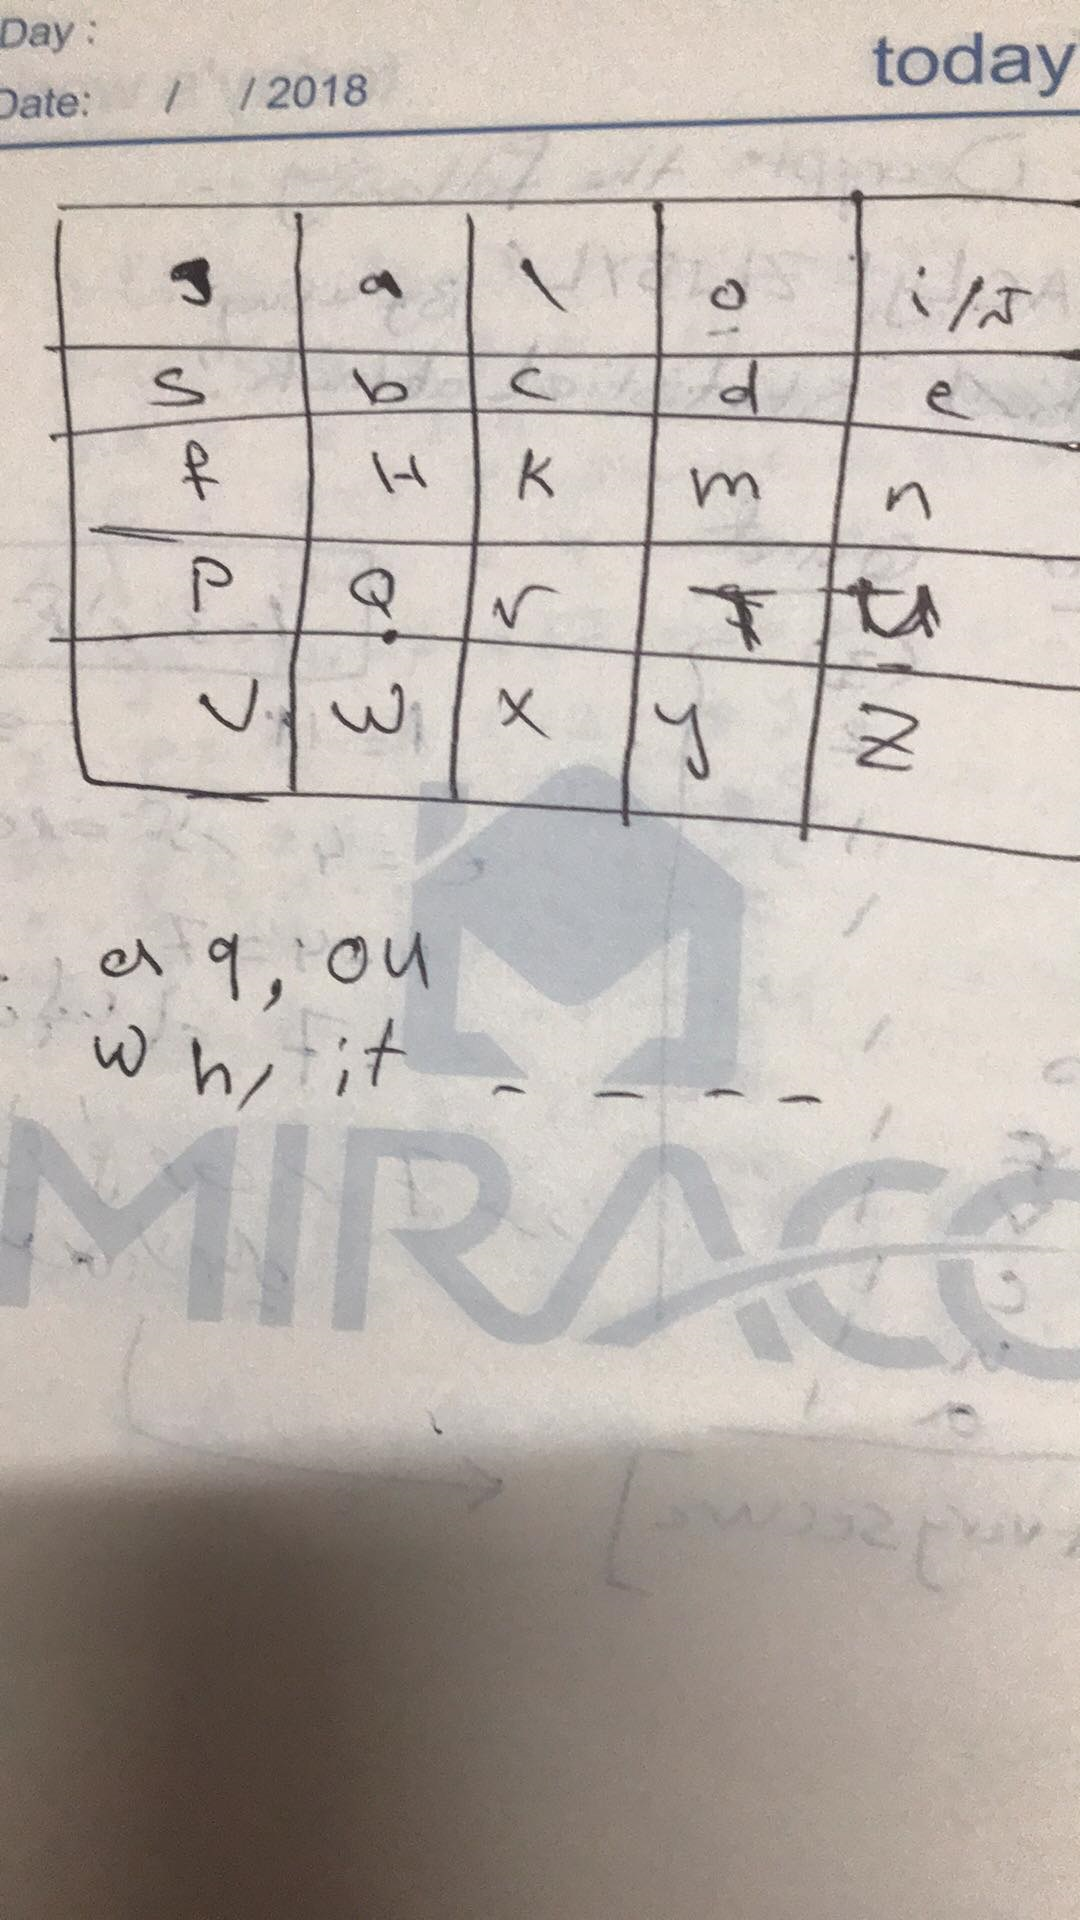 Day :
Date: / / 2018
today
g a l o i/J
S b c d e
f H K m n
P Q r T U
V W X y Z
a q, ou
w h, it - - - -
MIRACO